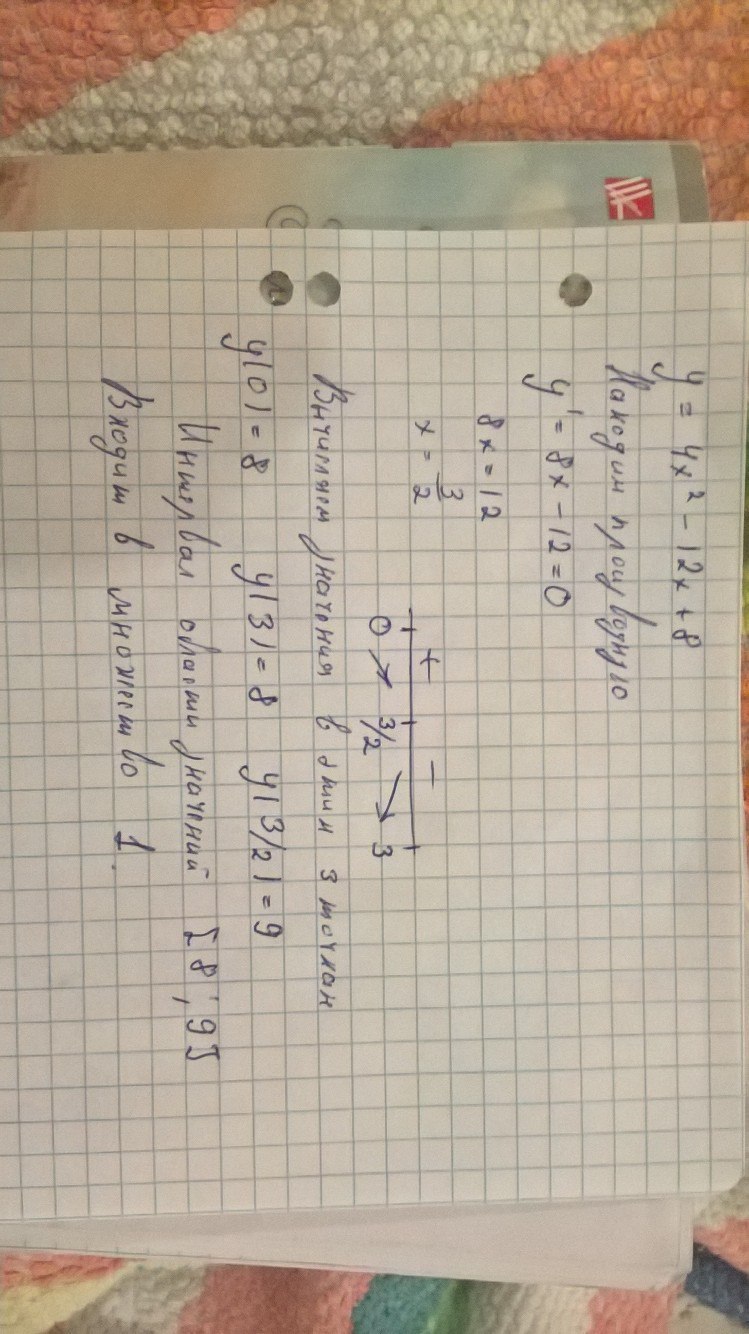 y = 4x² - 12x + 8
Находим производную
y' = 8x - 12 = 0
8x = 12
x = 3/2
+ −
0 3/2 3
Вычисляем значения в этих 3 точках
y(0) = 8 y(3) = 8 y(3/2) = 9
Интервал области значений [8; 9]
Входит в множество 1.